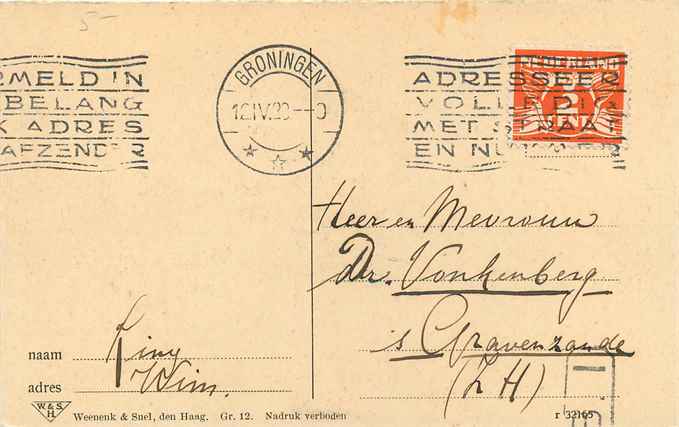 5-
RMELD IN
BELANG
K ADRES
AFZENDER
GRONINGEN
12.IV.29.--0
NEDERLAND
ADRESSEER
VOLLEDIG
MET STRAAT
EN NUMMER
Heer en Mevrouw
Dr. Vonkenberg
's Gravenzande
(Z H)
naam Riny
adres Wim.
W & S.
H.
Weenenk & Snel, den Haag. Gr. 12. Nadruk verboden
r 32165